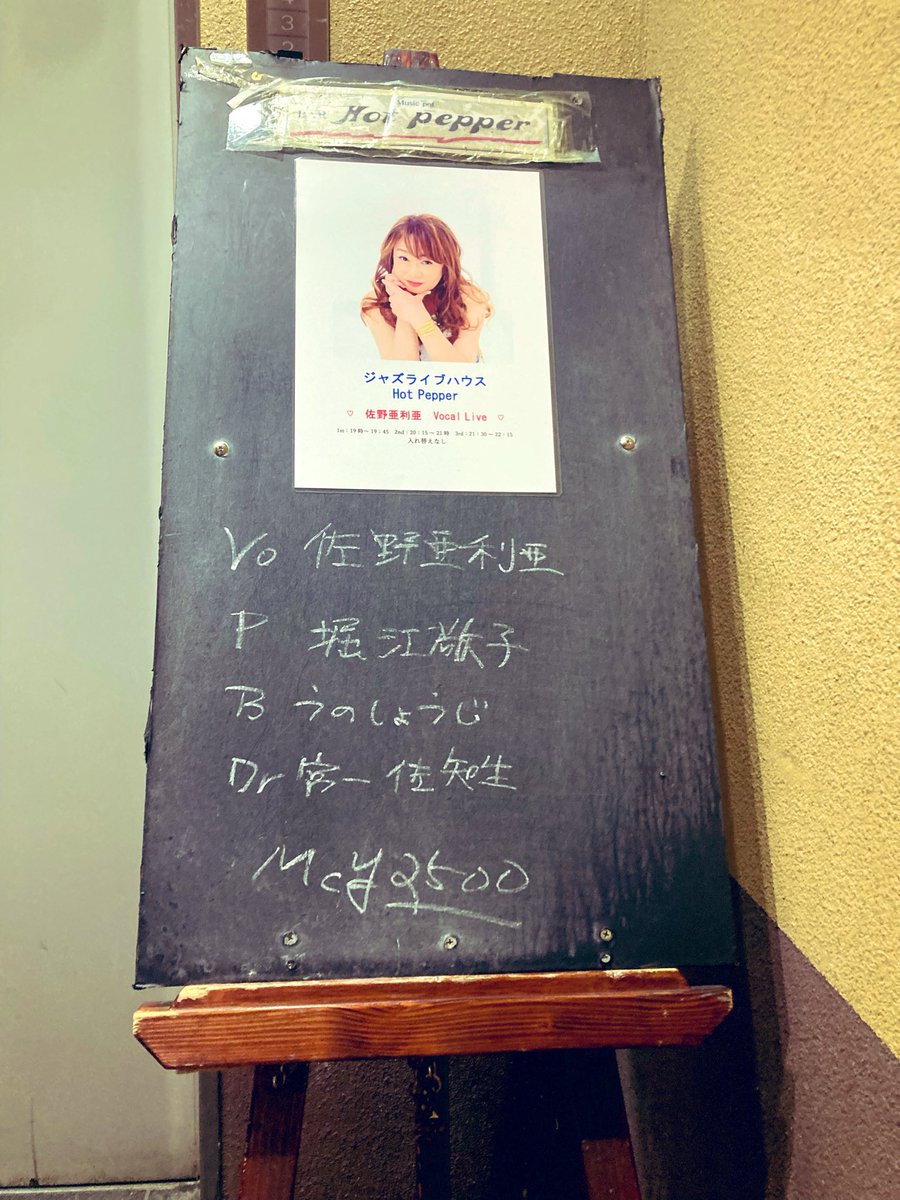 3
Music pot
BAR Hot pepper
ジャズライブハウス
Hot Pepper
♡ 佐野亜利亜 Vocal Live ♡
1st:19時~19:45 2nd:20:15~21時 3rd:21:30~22:15
入れ替えなし
Vo 佐野亜利亜
P 堀江敬子
B うのしょうじ
Dr 宮一佐知生
Mc¥2500